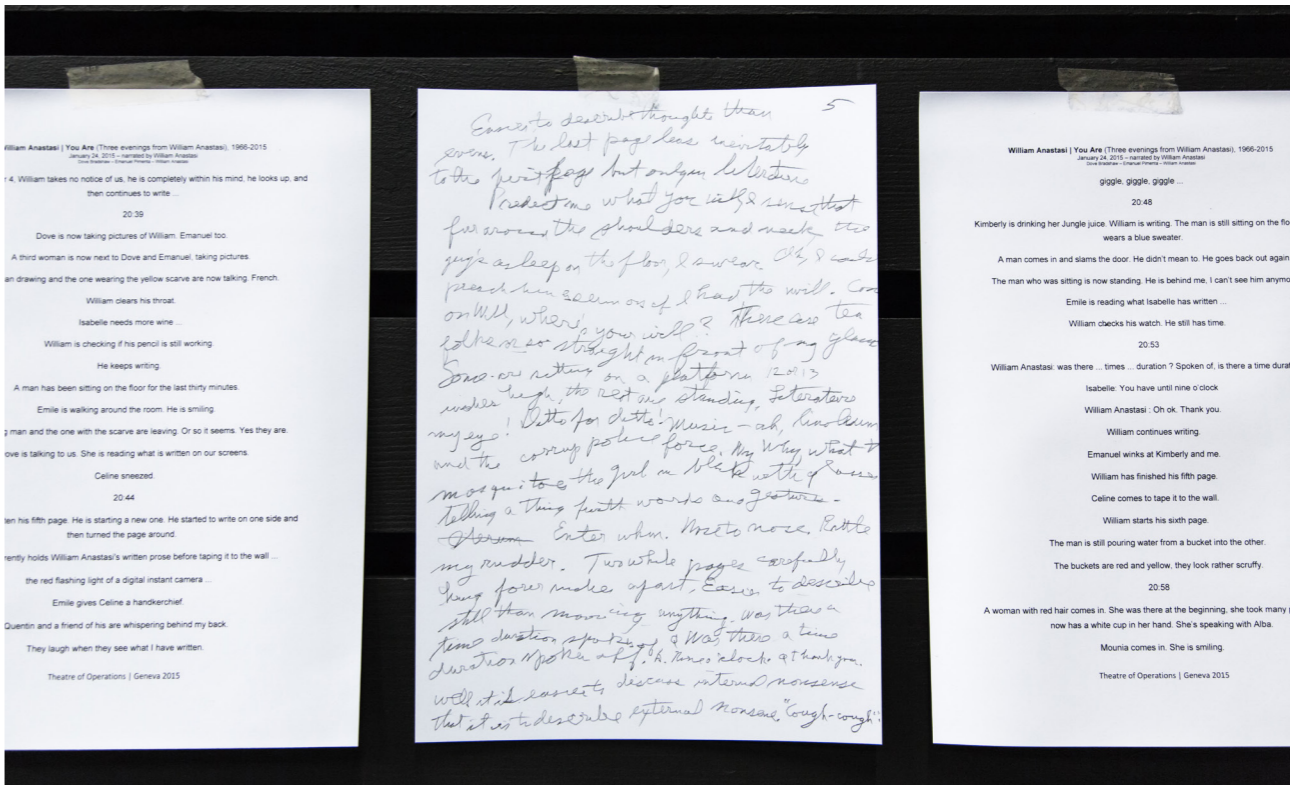 William Anastasi | You Are (Three evenings from William Anastasi), 1966-2015
January 24, 2015 – narrated by William Anastasi
Dove Bradshaw – Emanuel Pimenta – William Anastasi
r 4, William takes no notice of us, he is completely within his mind, he looks up, and
then continues to write ...
20:39
Dove is now taking pictures of William. Emanuel too.
A third woman is now next to Dove and Emanuel, taking pictures.
an drawing and the one wearing the yellow scarve are now talking. French.
William clears his throat.
Isabelle needs more wine ...
William is checking if his pencil is still working.
He keeps writing.
A man has been sitting on the floor for the last thirty minutes.
Emile is walking around the room. He is smiling.
g man and the one with the scarve are leaving. Or so it seems. Yes they are.
ove is talking to us. She is reading what is written on our screens.
Celine sneezed.
20:44
ten his fifth page. He is starting a new one. He started to write on one side and
then turned the page around.
rently holds William Anastasi's written prose before taping it to the wall ...
the red flashing light of a digital instant camera ...
Emile gives Celine a handkerchief.
Quentin and a friend of his are whispering behind my back.
They laugh when they see what I have written.
Theatre of Operations | Geneva 2015
5
Easier to describe thoughts than
The last page inevitably
to the first page but only in literature
what you
the shoulders and neck the
guy's asleep on the floor, I swear Oh, I
if I had the will.
on Will, where's your will? There are ten
or so straight in front of my
Some are sitting on a platform 12 or 13
inches high, the rest are standing, Literature
my eye! Ditto for ditto! Music – ah,
and the police force. My Why what
the girl in black with
telling a thing with words and gesture –
Enter Nose to nose. Rattle
my rudder. Two white pages carefully
hung apart, Easier to describe
still than moving anything. Was there a
time duration spoken of Was there a time
duration spoken of
well it is easier to discuss internal nonsense
that it is to describe external nonsense. "Cough-cough"
William Anastasi | You Are (Three evenings from William Anastasi), 1966-2015
January 24, 2015 – narrated by William Anastasi
Dove Bradshaw – Emanuel Pimenta – William Anastasi
giggle, giggle, giggle ...
20:48
Kimberly is drinking her Jungle juice. William is writing. The man is still sitting on the flo
wears a blue sweater.
A man comes in and slams the door. He didn't mean to. He goes back out again
The man who was sitting is now standing. He is behind me, I can't see him anymo
Emile is reading what Isabelle has written ...
William checks his watch. He still has time.
20:53
William Anastasi: was there ... times ... duration ? Spoken of, is there a time durat
Isabelle: You have until nine o'clock
William Anastasi : Oh ok. Thank you.
William continues writing.
Emanuel winks at Kimberly and me.
William has finished his fifth page.
Celine comes to tape it to the wall.
William starts his sixth page.
The man is still pouring water from a bucket into the other.
The buckets are red and yellow, they look rather scruffy.
20:58
A woman with red hair comes in. She was there at the beginning, she took many
now has a white cup in her hand. She's speaking with Alba.
Mounia comes in. She is smiling.
Theatre of Operations | Geneva 2015